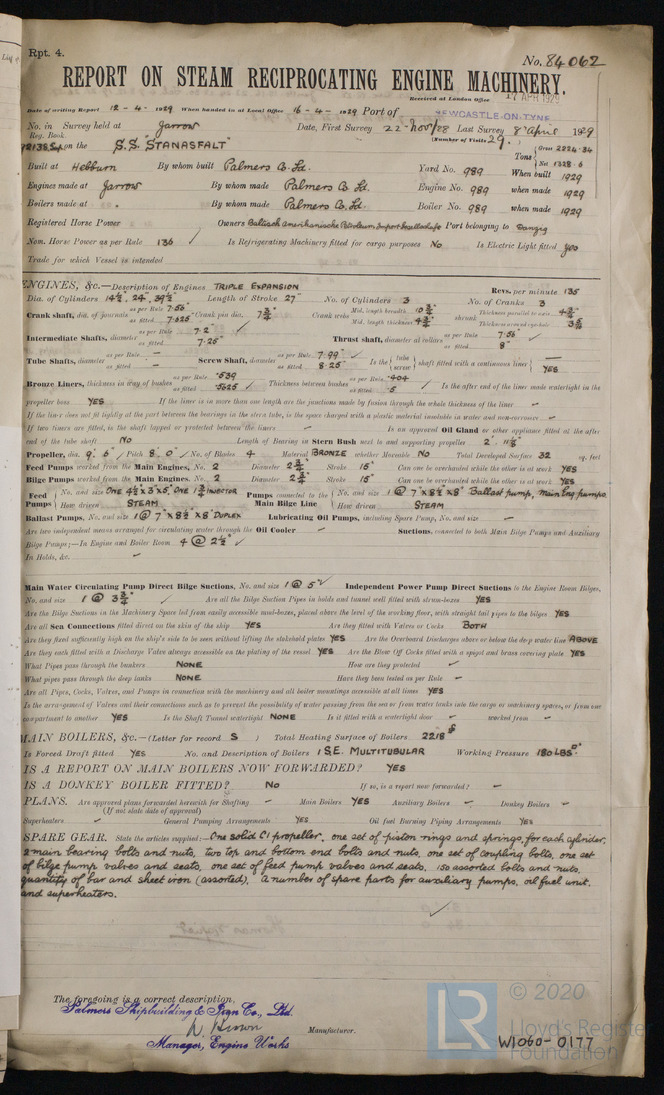 Rpt. 4.
No. 84062
REPORT ON STEAM RECIPROCATING ENGINE MACHINERY.
Received at London Office 17 APR 1929
Date of writing Report 12-4-1929 When handed in at Local Office 16-4-1929 Port of NEWCASTLE-ON-TYNE
No. in Survey held at Jarrow Date, First Survey 22-Nov/28 Last Survey 8 April 1929
Reg. Book. (Number of Visits 29.)
on the S.S. "STANASFALT" Tons Gross 2224.34 Net 1328.6
Built at Hebburn By whom built Palmers Co. Ld. Yard No. 989 When built 1929
Engines made at Jarrow By whom made Palmers Co. Ld. Engine No. 989 when made 1929
Boilers made at " . By whom made Palmers Co. Ld. Boiler No. 989 when made 1929
Registered Horse Power Owners Baltisch Amerikanische Petroleum Import Port belonging to Danzig
Nom. Horse Power as per Rule 136 ✓ Is Refrigerating Machinery fitted for cargo purposes No Is Electric Light fitted yes
Trade for which Vessel is intended
ENGINES, &c.—Description of Engines TRIPLE EXPANSION Revs. per minute 135
Dia. of Cylinders 14½, 24, 39½" Length of Stroke 27" No. of Cylinders 3 No. of Cranks 3
Crank shaft, dia. of journals as per Rule 7.56" as fitted 7.625" Crank pin dia. 7¾" Crank webs Mid. length breadth 10¾" Mid. length thickness 4¾" shrunk Thickness parallel to axis 4¾" Thickness around eyehole 3⅜"
Intermediate Shafts, diameter as per Rule 7.2" as fitted 7.25" Thrust shaft, diameter at collars as per Rule 7.56" as fitted 8"
Tube Shafts, diameter as per Rule — as fitted — Screw Shaft, diameter as per Rule 7.99" as fitted 8.25" Is the tube screw shaft fitted with a continuous liner — YES
Bronze Liners, thickness in way of bushes as per Rule .539 as fitted .5625 Thickness between bushes as per Rule .404 as fitted .5 Is the after end of the liner made watertight in the
propeller boss YES If the liner is in more than one length are the junctions made by fusion through the whole thickness of the liner —
If the liner does not fit tightly at the part between the bearings in the stern tube, is the space charged with a plastic material insoluble in water and non-corrosive —
If two liners are fitted, is the shaft lapped or protected between the liners — Is an approved Oil Gland or other appliance fitted at the after
end of the tube shaft No Length of Bearing in Stern Bush next to and supporting propeller
Propeller, dia. 9'. 6" Pitch 8'. 0" No. of Blades 4 Material BRONZE whether Moveable No Total Developed Surface 32 sq. feet
Feed Pumps worked from the Main Engines, No. 2 Diameter 2¾" Stroke 15" Can one be overhauled while the other is at work YES
Bilge Pumps worked from the Main Engines, No. 2 Diameter 2¾" Stroke 15" Can one be overhauled while the other is at work YES
Feed Pumps No. and size ONE 4½"x3"x5", ONE 1¾" INJECTOR How driven STEAM Pumps connected to the Main Bilge Line No. and size 1 @ 7"x8½"x8" Ballast pump, main Eng pumps. How driven STEAM
Ballast Pumps, No. and size 1 @ 7"x8½"x8" DUPLEX Lubricating Oil Pumps, including Spare Pump, No. and size —
Are two independent means arranged for circulating water through the Oil Cooler — Suctions, connected to both Main Bilge Pumps and Auxiliary
Bilge Pumps;—In Engine and Boiler Room 4 @ 2½" ✓
In Holds, &c. —
Main Water Circulating Pump Direct Bilge Suctions, No. and size 1 @ 5" ✓ Independent Power Pump Direct Suctions to the Engine Room Bilges,
No. and size 1 @ 3¾" ✓ Are all the Bilge Suction Pipes in holds and tunnel well fitted with strum-boxes YES
Are the Bilge Suctions in the Machinery Space led from easily accessible mud-boxes, placed above the level of the working floor, with straight tail pipes to the bilges YES
Are all Sea Connections fitted direct on the skin of the ship YES Are they fitted with Valves or Cocks BOTH
Are they fixed sufficiently high on the ship's side to be seen without lifting the stokehold plates YES Are the Overboard Discharges above or below the deep water line ABOVE
Are they each fitted with a Discharge Valve always accessible on the plating of the vessel YES Are the Blow Off Cocks fitted with a spigot and brass covering plate YES
What Pipes pass through the bunkers NONE How are they protected —
What pipes pass through the deep tanks NONE Have they been tested as per Rule —
Are all Pipes, Cocks, Valves, and Pumps in connection with the machinery and all boiler mountings accessible at all times YES
Is the arrangement of Valves and their connections such as to prevent the possibility of water passing from the sea or from water tanks into the cargo or machinery spaces, or from one
compartment to another YES Is the Shaft Tunnel watertight NONE Is it fitted with a watertight door — worked from —
MAIN BOILERS, &c.—(Letter for record S ) Total Heating Surface of Boilers 2218
Is Forced Draft fitted YES No. and Description of Boilers 1 S.E. MULTITUBULAR Working Pressure 180 LBS
IS A REPORT ON MAIN BOILERS NOW FORWARDED? YES
IS A DONKEY BOILER FITTED? No If so, is a report now forwarded? —
PLANS. Are approved plans forwarded herewith for Shafting — Main Boilers YES Auxiliary Boilers — Donkey Boilers —
(If not state date of approval)
Superheaters — General Pumping Arrangements YES Oil fuel Burning Piping Arrangements YES
SPARE GEAR. State the articles supplied:—One solid C.I propeller, one set of piston rings and springs, for each cylinder,
2 main bearing bolts and nuts, two top and bottom end bolts and nuts, one set of coupling bolts, one set
of bilge pump valves and seats, one set of feed pump valves and seats, 150 assorted bolts and nuts,
quantity of bar and sheet iron (assorted), a number of spare parts for auxiliary pumps, oil fuel unit,
and superheaters.
The foregoing is a correct description,
Palmers Shipbuilding & Iron Co., Ltd.
Manufacturer.
Manager, Engine Works
LR © 2020
Lloyd's Register
Foundation
W1060-0177